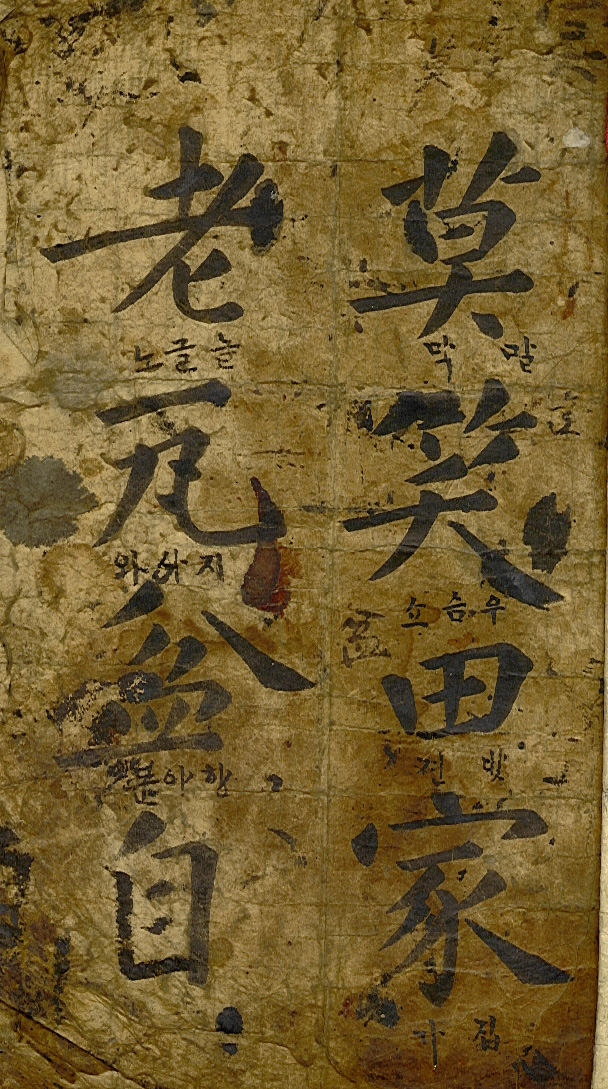 莫
말 막
笑
우슴 쇼
田
밧 전
家
집 가
老
늘글 노
瓦
와
盆
항아 분
自